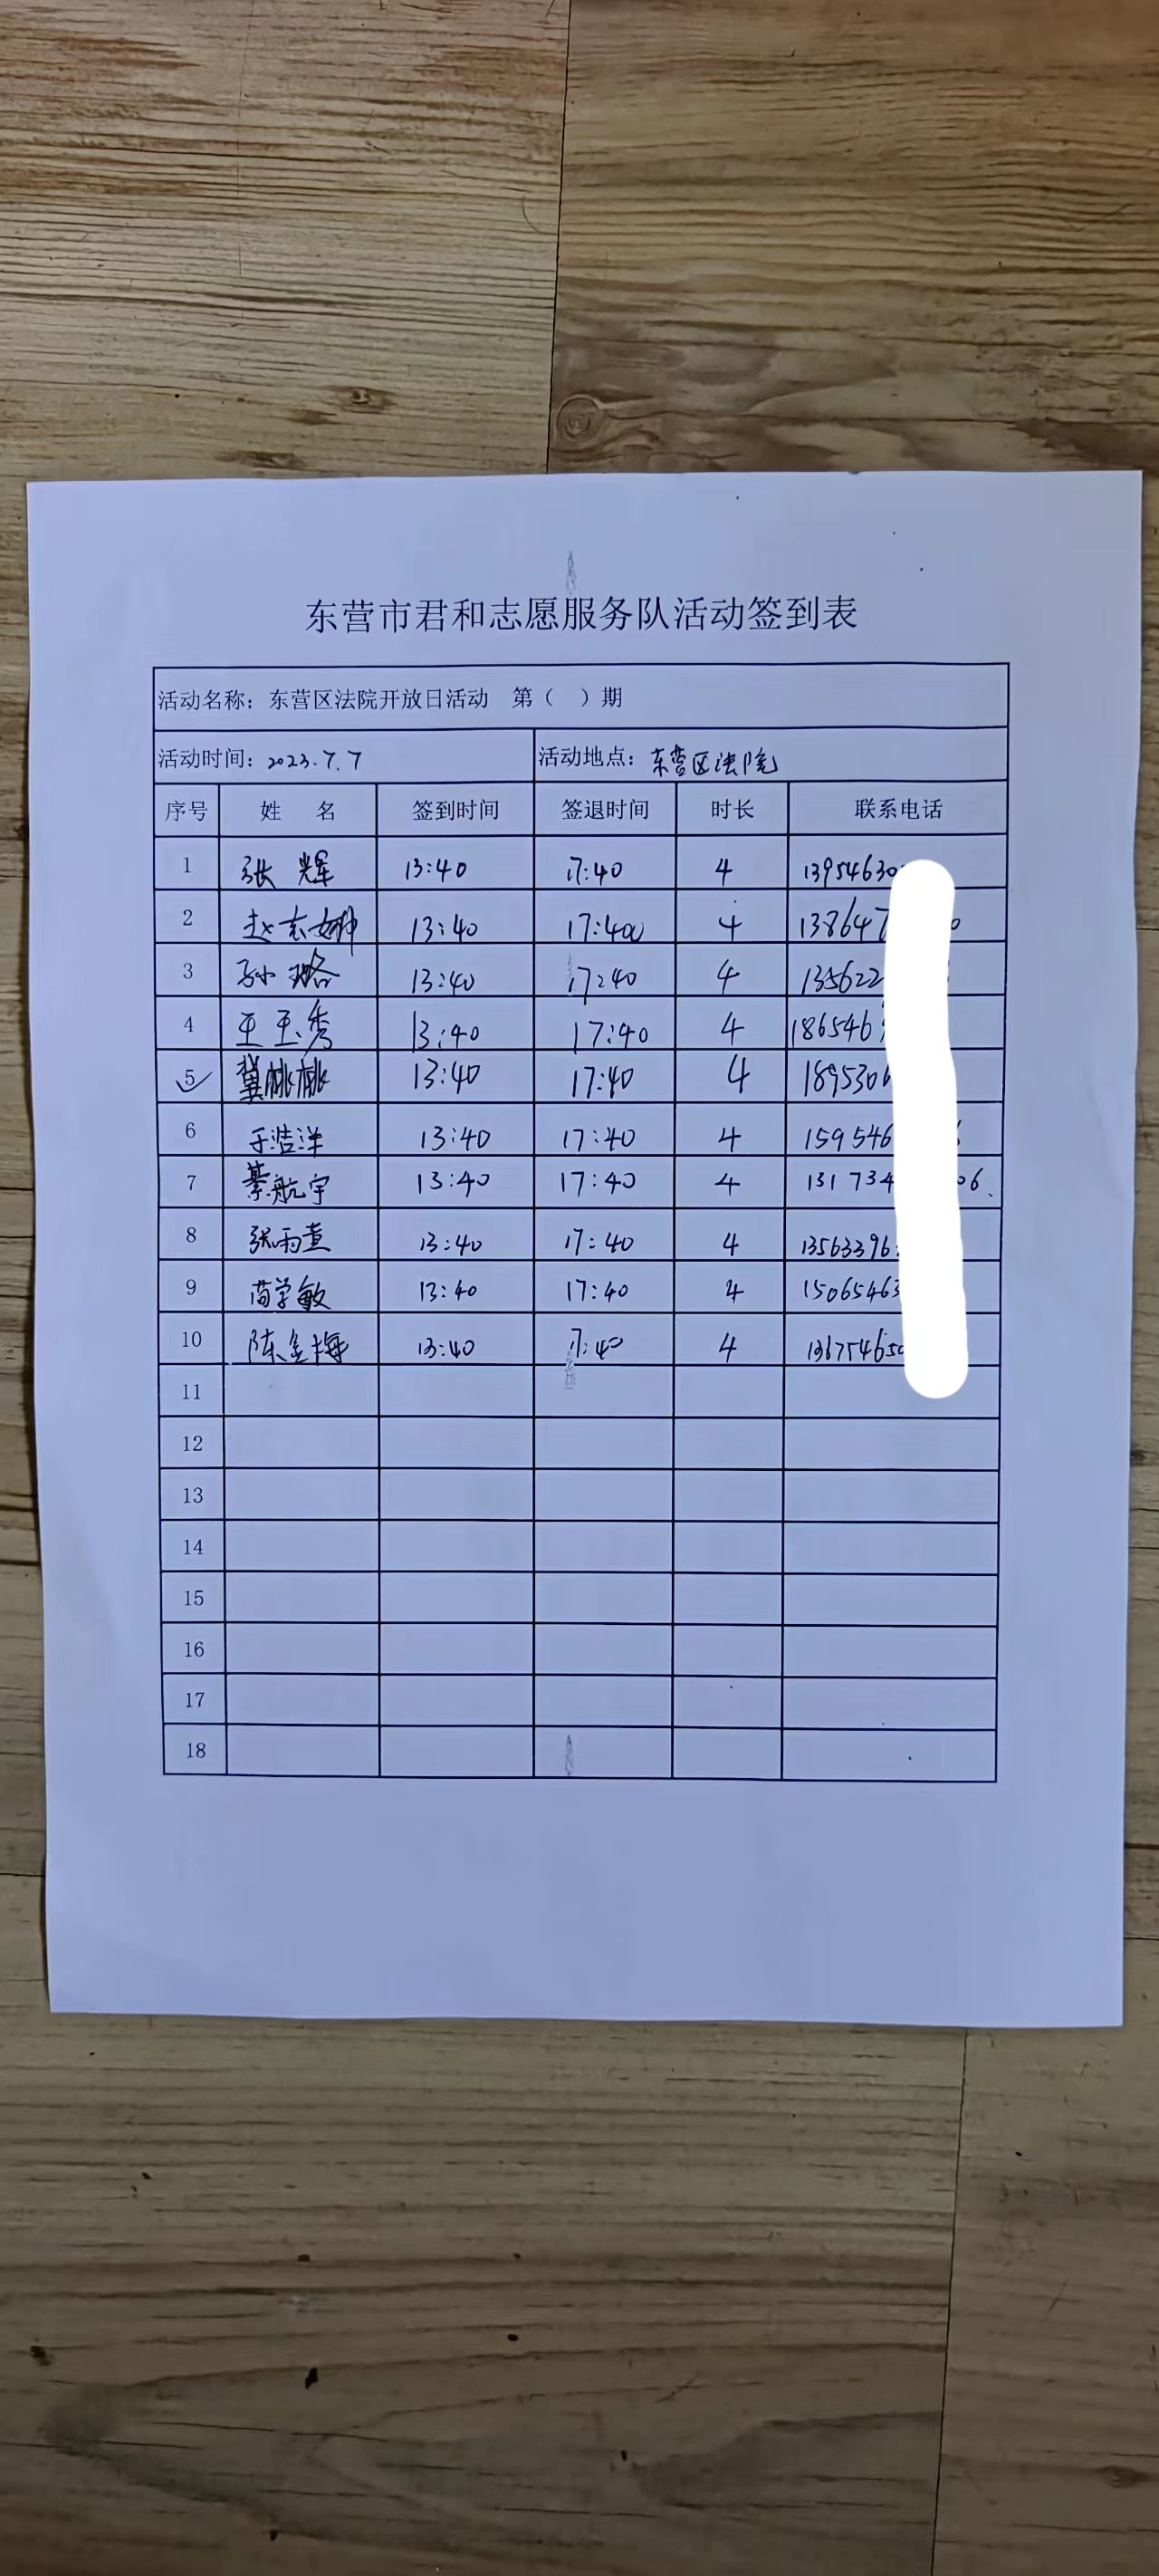 东营市君和志愿服务队活动签到表
活动名称：东营区法院开放日活动 第（ ）期
活动时间：2023.7.7 活动地点：东营区法院
序号 姓 名 签到时间 签退时间 时长 联系电话
1 张辉 13:40 17:40 4 13954630
2 赵志娜 13:40 17:40 4 138647
3 孙璐 13:40 17:40 4 135622
4 王玉秀 13:40 17:40 4 186546
5 冀桃桃 13:40 17:40 4 189530
6 于浩洋 13:40 17:40 4 159546
7 綦航宇 13:40 17:40 4 131734 06
8 张雨萱 13:40 17:40 4 13563396
9 苘学敏 13:40 17:40 4 15065463
10 陈金梅 13:40 17:40 4 136754650
11
12
13
14
15
16
17
18